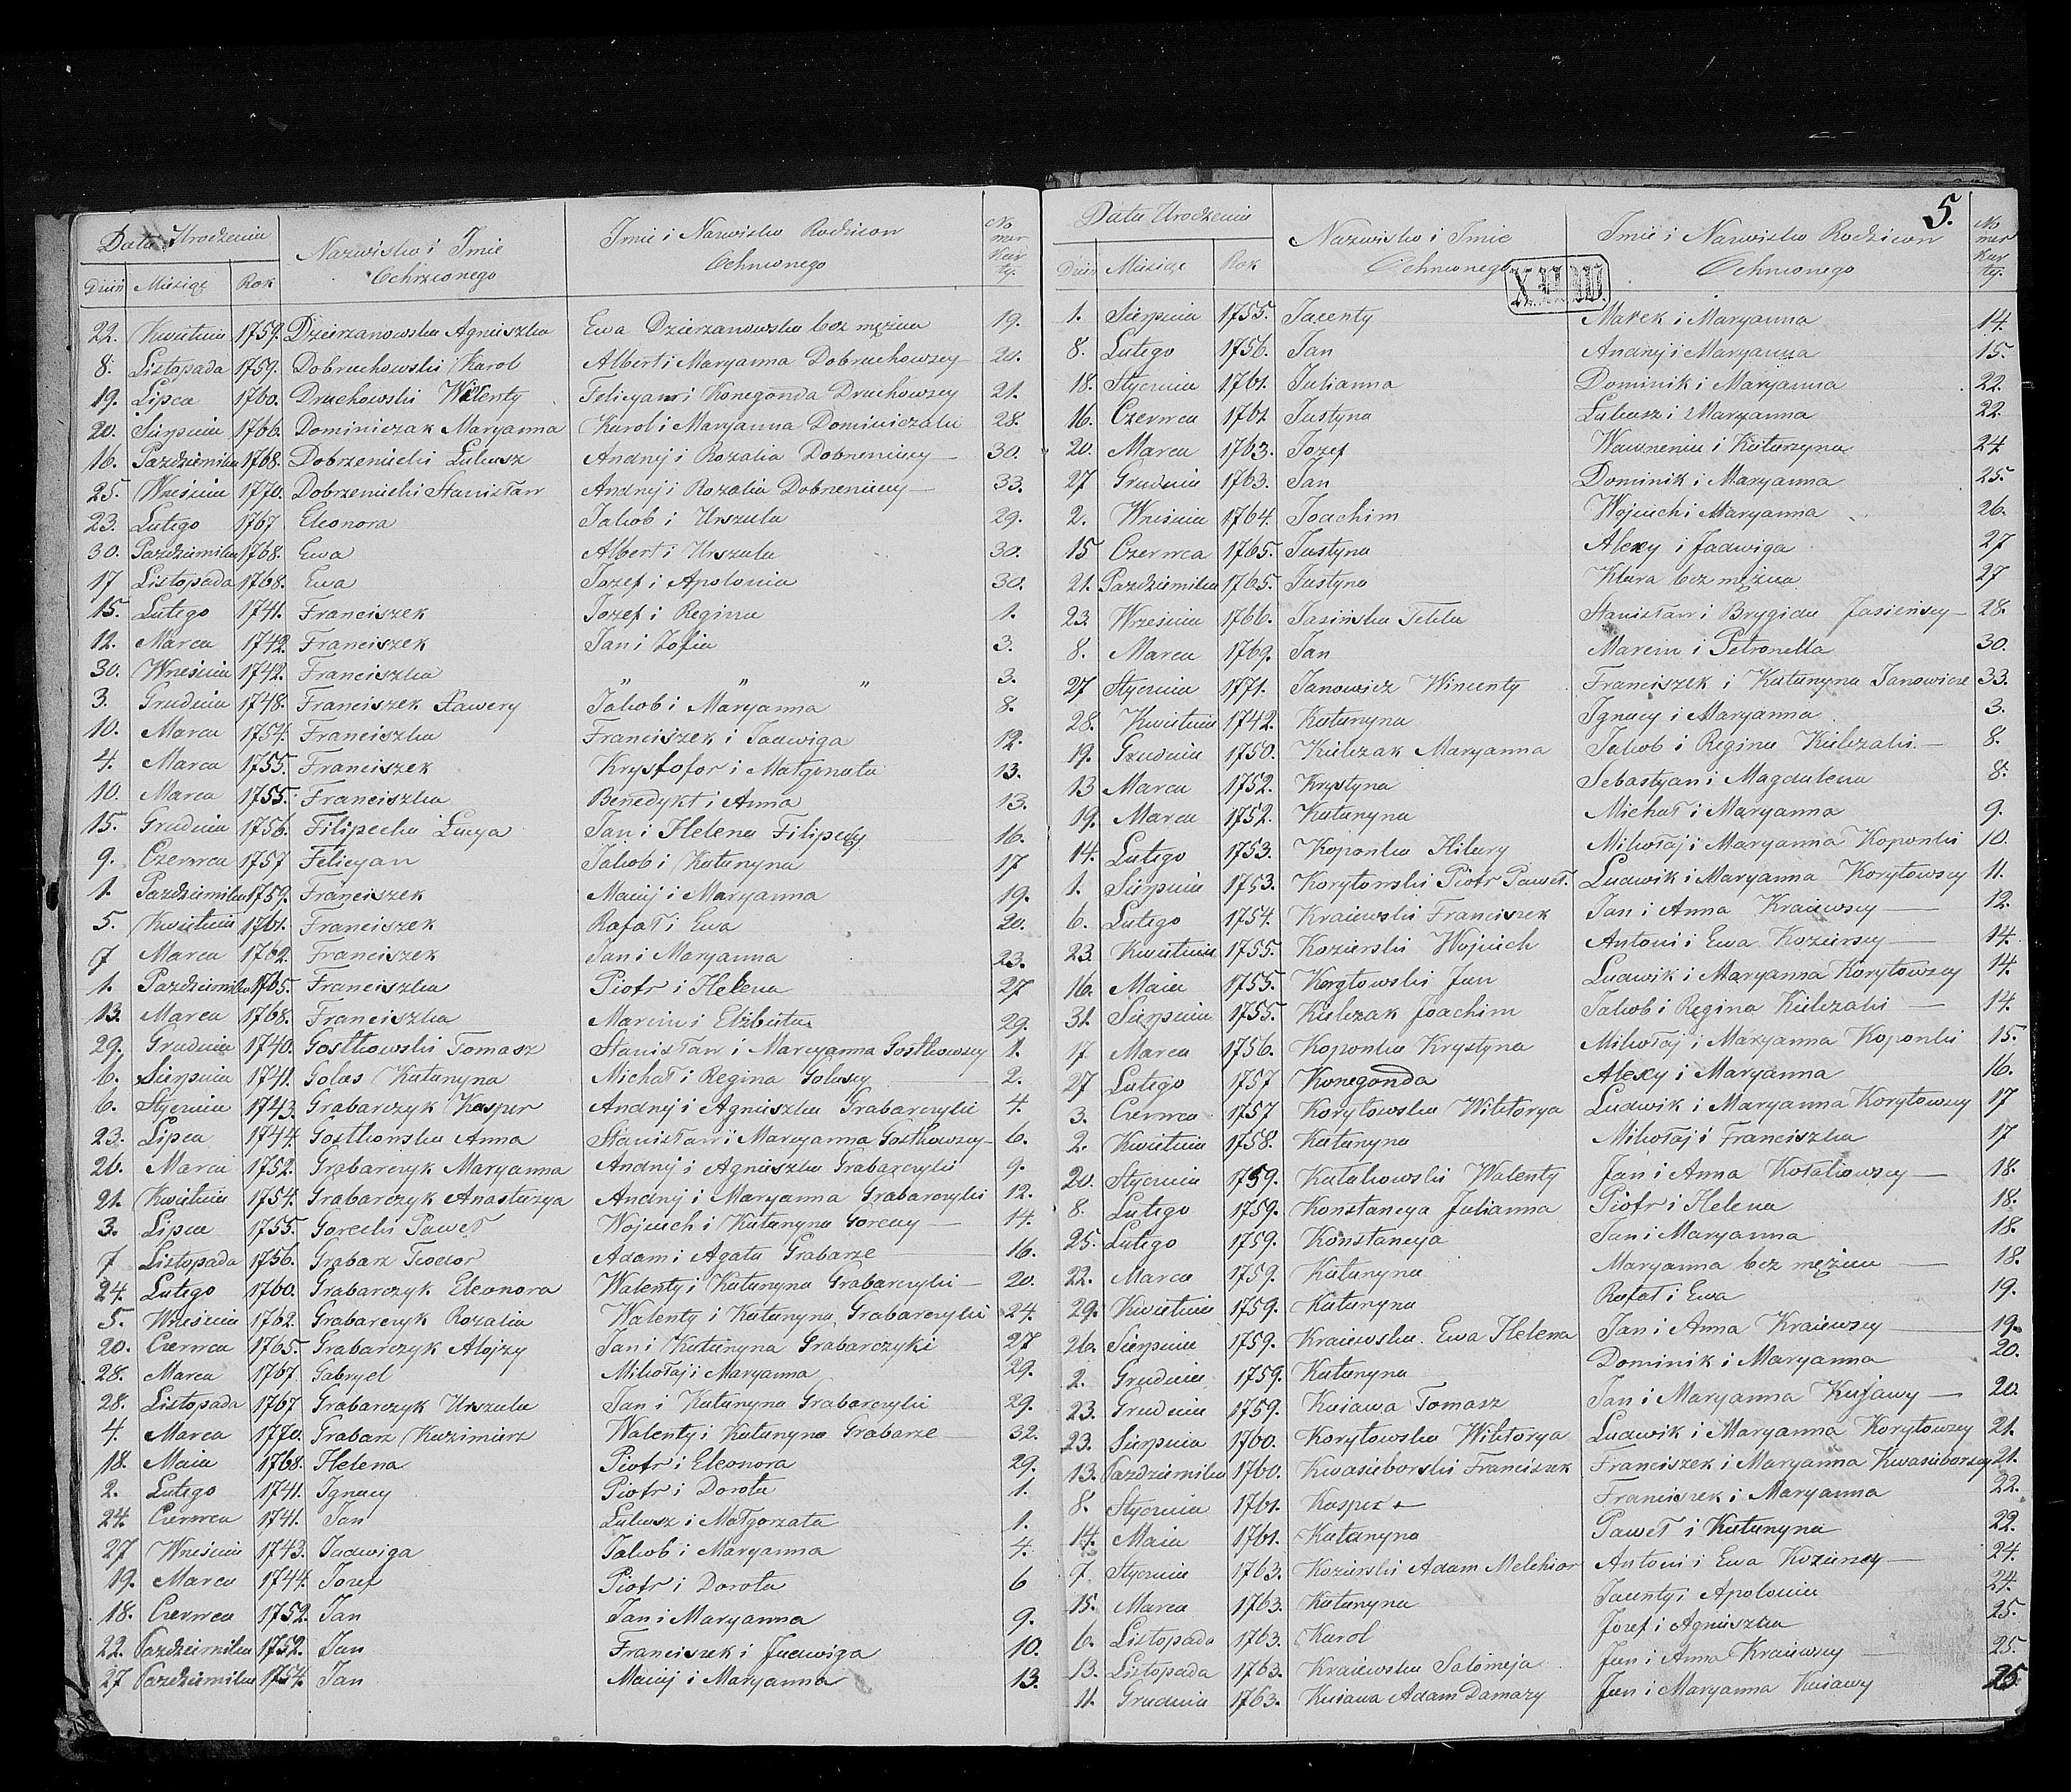 Data Urodzenia
Nazwisko i Imie Ochrzconego
Imie i Nazwisko Rodzicow Ochrzconego
No mer Kar ty.
Dzień Miesiąc Rok
22. Kwietnia 1759. Dzierzanowska Agnieszka Ewa Dzierzanowska bez mężna 19.
8. Listopada 1759. Dobruchowski Karol Albert i Maryanna Dobruchowscy 20.
19. Lipca 1760. Druchowski Walenty Felicyan i Konegonda Druchowscy 21.
20. Sierpnia 1766. Dominiczak Maryanna Karol i Maryanna Dominiczaki 28.
16. Pazdziernika 1768. Dobrzenicki Lukasz Andrzej i Rozalia Dobrzeniccy 30.
25. Wrzesnia 1770. Dobrzenicki Stanisław Andrzej i Rozalia Dobrzeniccy 33.
23. Lutego 1767 Eleonora Jakob i Urszula 29.
30. Pazdziernika 1768. Ewa Albert i Urszula 30.
17 Listopada 1768. Ewa Jozef i Apolonia 30.
15. Lutego 1741. Franciszek Jozef i Regina 1.
12. Marca 1742. Franciszek Jan i Zofia 3.
30. Wrzesnia 1742. Franciszka " " " 3.
3. Grudnia 1748. Franciszek Xawery Jakob i Maryanna 8.
10. Marca 1754. Franciszka Franciszek i Jadwiga 12.
4. Marca 1755. Franciszek Krysztofor i Małgorzata 13.
10. Marca 1755. Franciszka Benedykt i Anna 13.
15. Grudnia 1756. Filipecka Łucya Jan i Helena Filipeccy 16.
9. Czerwca 1757 Felicyan Jakob i Katarzyna 17
1. Pazdziernika 1759. Franciszek Maciej i Maryanna 19.
5. Kwietnia 1761. Franciszek Rafał i Ewa 20.
7 Marca 1762. Franciszek Jan i Maryanna 23.
1. Pazdziernika 1765. Franciszka Piotr i Helena 27
13. Marca 1768. Franciszka Marcin i Elżbieta 29.
29. Grudnia 1740. Gostkowski Tomasz Stanisław i Maryanna Gostkowscy 1.
6. Sierpnia 1741. Golas Katarzyna Michał i Regina Golasy 2.
6. Stycznia 1743. Grabarczyk Kasper Andrzej i Agnieszka Grabarczyki 4.
23. Lipca 1744. Gostkowska Anna Stanisław i Maryanna Gostkowscy 6.
26. Marca 1752. Grabarczyk Maryanna Andrzej i Agnieszka Grabarczyki 9.
21. Kwietnia 1754. Grabarczyk Anastazya Andrzej i Maryanna Grabarczyki 12.
3. Lipca 1755. Gorecki Paweł Wojciech i Katarzyna Goreccy 14.
7 Listopada 1756. Grabarz Teodor Adam i Agata Grabarze 16.
24. Lutego 1760. Grabarczyk Eleonora Walenty i Katarzyna Grabarczyki 20.
5. Wrzesnia 1762. Grabarczyk Rozalia Walenty i Katarzyna Grabarczyki 24.
20. Czerwca 1765. Grabarczyk Alojzy Jan i Katarzyna Grabarczyki 27
28. Marca 1767. Gabryel Mikołaj i Maryanna 29.
28. Listopada 1767 Grabarczyk Urszula Jan i Katarzyna Grabarczyki 29.
4. Marca 1770. Grabarz Kazimierz Walenty i Katarzyna Grabarze 32.
18. Maia 1768. Helena Piotr i Eleonora 29.
2. Lutego 1741. Ignacy Piotr i Dorota 1.
24. Czerwca 1741. Jan Lukasz i Małgorzata 1.
27 Wrzesnia 1743. Jadwiga Jakob i Maryanna 4.
19. Marca 1744. Jozef Piotr i Dorota 6
18. Czerwca 1752. Jan Jan i Maryanna 9.
22. Pazdziernika 1752. Jan Franciszek i Jadwiga 10.
27 Pazdziernika 1754. Jan Maciej i Maryanna 13.
5.
Data Urodzenia
Nazwisko i Imie Ochrzconego
Imie i Nazwisko Rodzicow Ochrzconego
No mer Kar ty.
Dzień Miesiąc Rok
1. Sierpnia 1755. Jacenty Marek i Maryanna 14.
8. Lutego 1756. Jan Andrzej i Maryanna 15.
18. Stycznia 1761. Julianna Dominik i Maryanna 22.
16. Czerwca 1761 Justyna Lukasz i Maryanna 22.
20. Marca 1763. Jozef Wawrzeniec i Katarzyna 24
27 Grudnia 1763. Jan Dominik i Maryanna 25.
2. Wrzesnia 1764. Joachim Wojciech i Maryanna 26.
15 Czerwca 1765. Justyna Alexy i Jadwiga 27
21. Pazdziernika 1765. Justyna Klara bez mężna 27
23. Wrzesnia 1766. Jasińska Tekla Stanisław i Brygida Jasieńscy 28.
8. Marca 1769. Jan Marcin i Petronella 30.
27 Stycznia 1771. Janowicz Wincenty Franciszek i Katarzyna Janowicze 33.
28. Kwietnia 1742. Katarzyna Ignacy i Maryanna 3.
19. Grudnia 1750. Kielczak Maryanna Jakob i Regina Kielczaki 8.
13 Marca 1752. Krystyna Sebastyan i Magdalena 8.
19. Marca 1752. Katarzyna Michał i Maryanna 9.
14. Lutego 1753. Koponka Hilary Mikołaj i Maryanna Koponki 10.
1. Sierpnia 1753. Korytowski Piotr Paweł Ludwik i Maryanna Korytowscy 11.
6. Lutego 1754. Kraiewski Franciszek Jan i Anna Kraiewscy 12.
23. Kwietnia 1755. Kozierski Wojciech Antoni i Ewa Kozierscy 14.
16. Maia 1755. Korytowski Jan Ludwik i Maryanna Korytowscy 14.
31. Sierpnia 1755. Kielczak Joachim Jakob i Regina Kielczaki 14.
17 Marca 1756. Koponka Krystyna Mikołaj i Maryanna Koponki 15.
27 Lutego 1757 Konegonda Alexy i Maryanna 16.
3. Czerwca 1757 Korytowska Wiktorya Ludwik i Maryanna Korytowscy 17
2. Kwietnia 1758. Katarzyna Mikołaj i Franciszka 17
20. Stycznia 1759. Kałakowski Walenty Jan i Anna Kołakowscy 18.
8. Lutego 1759. Konstancya Julianna Piotr i Helena 18.
25. Lutego 1759. Konstancyja Jan i Maryanna 18.
22. Marca 1759. Katarzyna Maryanna bez mężna 18.
29. Kwietnia 1759. Katarzyna Rafał i Ewa 19.
26. Sierpnia 1759. Kraiewska Ewa Helena Jan i Anna Kraiewscy 19.
2. Grudnia 1759. Katarzyna Dominik i Maryanna 20.
23. Grudnia 1759. Kuiawa Tomasz Jan i Maryanna Kujawy 20.
23. Sierpnia 1760. Korytowska Wiktorya Ludwik i Maryanna Korytowscy 21.
13. Pazdziernika 1760. Kwasieborski Franciszek Franciszek i Maryanna Kwasieborscy 21.
8. Stycznia 1761. Kasper Franciszek i Maryanna 22.
14. Maia 1761. Katarzyna Paweł i Katarzyna 22.
7 Stycznia 1763. Kozierski Adam Melchior Antoni i Ewa Kozierscy 24.
15. Marca 1763. Katarzyna Jacenty i Apolonia 24.
6. Listopada 1763. Karol Jozef i Agnieszka 25.
13. Listopada 1763. Kraiewska Salomeja Jan i Anna Kraiewscy 25.
11. Grudnia 1763. Kuiawa Adam Damazy Jan i Maryanna Kuiawy 25